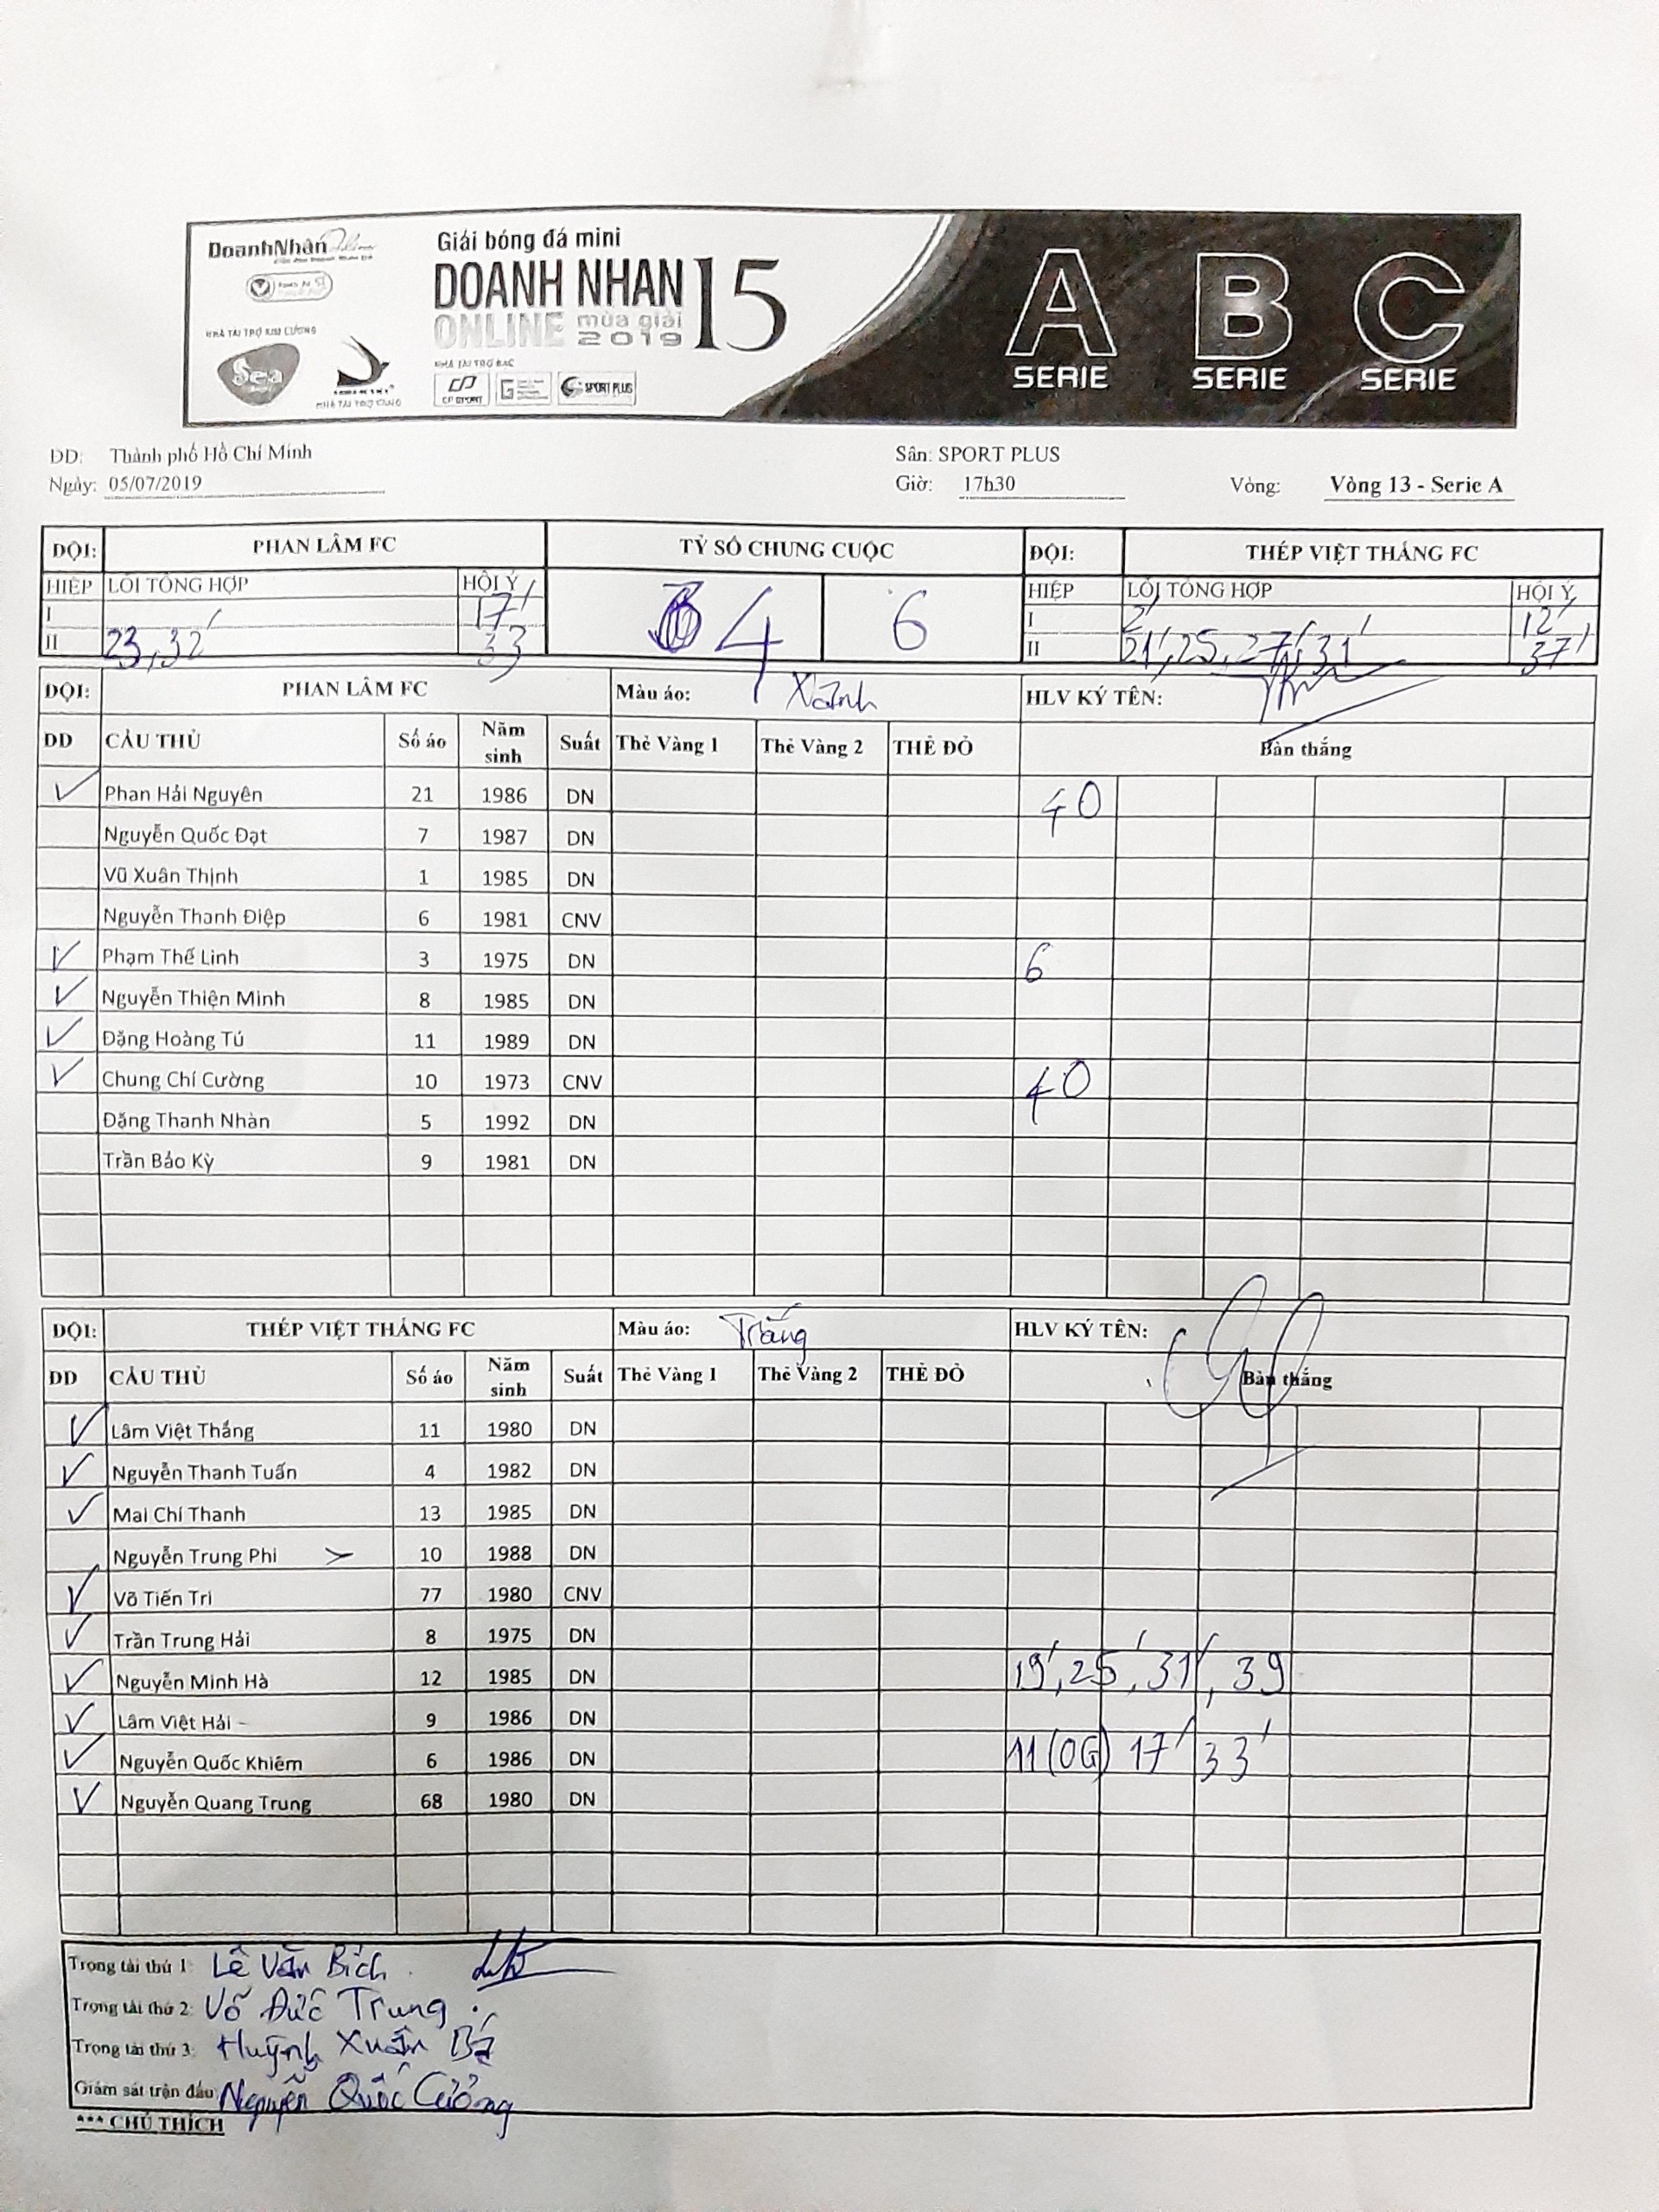 DoanhNhân Online
Giải bóng đá mini
DOANH NHAN 15
ONLINE mùa giải
2019
NHÀ TÀI TRỢ KIM CƯƠNG
Sea
NHÀ TÀI TRỢ VÀNG
NHÀ TÀI TRỢ BẠC
CP SPORT
SPORT PLUS
A B C
SERIE SERIE SERIE
DD: Thành phố Hồ Chí Minh Sân: SPORT PLUS
Ngày: 05/07/2019 Giờ: 17h30 Vòng: Vòng 13 - Serie A
ĐỘI: PHAN LÂM FC TỶ SỐ CHUNG CUỘC ĐỘI: THÉP VIỆT THẮNG FC
HIỆP LỖI TỔNG HỢP HỘI Ý 4 6 HIỆP LỖI TỔNG HỢP HỘI Ý
I 17' I 2' 12'
II 23, 32' 33 II 21', 25, 27', 31' 37'
ĐỘI: PHAN LÂM FC Màu áo: Xanh HLV KÝ TÊN:
DD CẦU THỦ Số áo Năm sinh Suất Thẻ Vàng 1 Thẻ Vàng 2 THẺ ĐỎ Bàn thắng
✓ Phan Hải Nguyên 21 1986 DN 40
Nguyễn Quốc Đạt 7 1987 DN
Vũ Xuân Thịnh 1 1985 DN
Nguyễn Thanh Điệp 6 1981 CNV
✓ Phạm Thế Linh 3 1975 DN 6
✓ Nguyễn Thiện Minh 8 1985 DN
✓ Đặng Hoàng Tú 11 1989 DN
✓ Chung Chí Cường 10 1973 CNV 40
Đặng Thanh Nhàn 5 1992 DN
Trần Bảo Kỳ 9 1981 DN
ĐỘI: THÉP VIỆT THẮNG FC Màu áo: Trắng HLV KÝ TÊN:
DD CẦU THỦ Số áo Năm sinh Suất Thẻ Vàng 1 Thẻ Vàng 2 THẺ ĐỎ Bàn thắng
✓ Lâm Việt Thắng 11 1980 DN
✓ Nguyễn Thanh Tuấn 4 1982 DN
✓ Mai Chí Thanh 13 1985 DN
Nguyễn Trung Phi 10 1988 DN
✓ Võ Tiến Tri 77 1980 CNV
✓ Trần Trung Hải 8 1975 DN
✓ Nguyễn Minh Hà 12 1985 DN 19', 25', 31', 39
✓ Lâm Việt Hải - 9 1986 DN
✓ Nguyễn Quốc Khiêm 6 1986 DN 11 (OG) 17' 33'
✓ Nguyễn Quang Trung 68 1980 DN
Trọng tài thứ 1: Lê Văn Bích
Trọng tài thứ 2: Võ Đức Trung
Trọng tài thứ 3: Huỳnh Xuân Bá
Giám sát trận đấu: Nguyễn Quốc Cường
*** CHÚ THÍCH